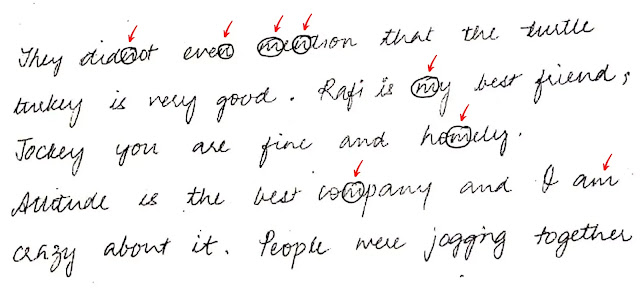 They did not even mention that the turtle
turkey is very good. Rafi is my best friend,
Jockey you are fine and homely.
Attitude is the best company and I am
crazy about it. People were jogging together